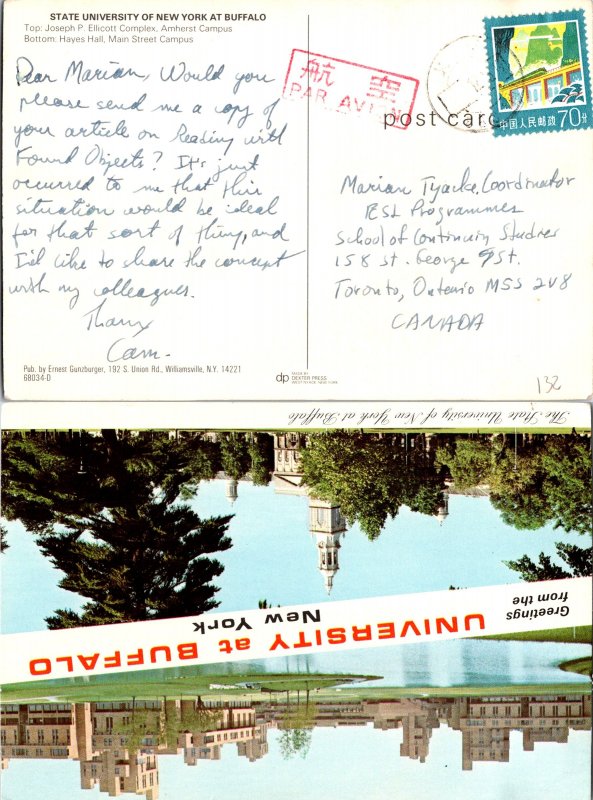 STATE UNIVERSITY OF NEW YORK AT BUFFALO
Top: Joseph P. Ellicott Complex, Amherst Campus
Bottom: Hayes Hall, Main Street Campus
Dear Marian, Would you
please send me a copy of
your article on Reading with
Found Objects? It's just
occurred to me that this
situation would be ideal
for that sort of thing, and
I'd like to share the concept
with my colleagues.
Thanx
Cam.
Pub. by Ernest Gunzburger, 192 S. Union Rd., Williamsville, N.Y. 14221
68034-D
航空
PAR AVION
post card
中国人民邮政 70分
Marian Tyacke, Coordinator
ESL Programmes
School of Continuin Studies
158 St. George St.
Toronto, Ontario M5S 2V8
CANADA
dp MADE BY
DEXTER PRESS
WEST NYACK, NEW YORK
132
The State University of New York at Buffalo
Greetings
from the
UNIVERSITY at BUFFALO
New York